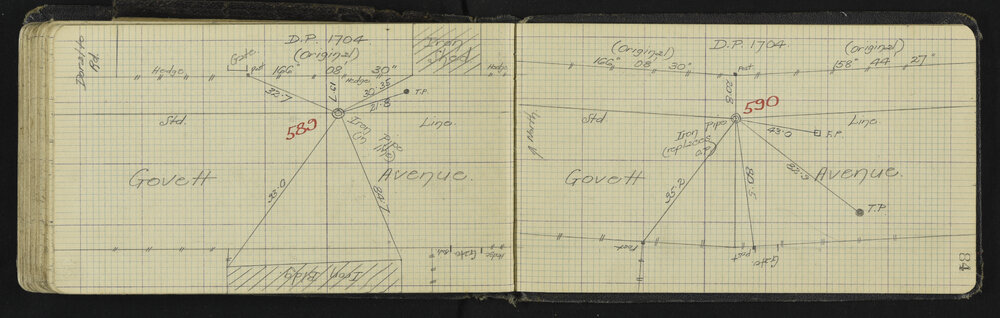 D.P. 1704.
(original)
166° 08' 30"
Gate
post
Hedge
Hedge
Hedge
Iron
Shed
Rd.
33.7
19.7
30.35
21.8
T.P.
589
Std. Line.
Iron Pipe
(in
Govett Avenue.
33.0
84.7
Iron Bldg
Gate
Hedge
D.P. 1704.
(original)
166° 08' 30"
(original)
158° 44 27"
post
20.8
590
Std Line.
Iron Pipe
(replaces
O.P.)
43.0
F.P.
Govett Avenue.
35.2
80.5
T.P.
Post
post
Gate
84